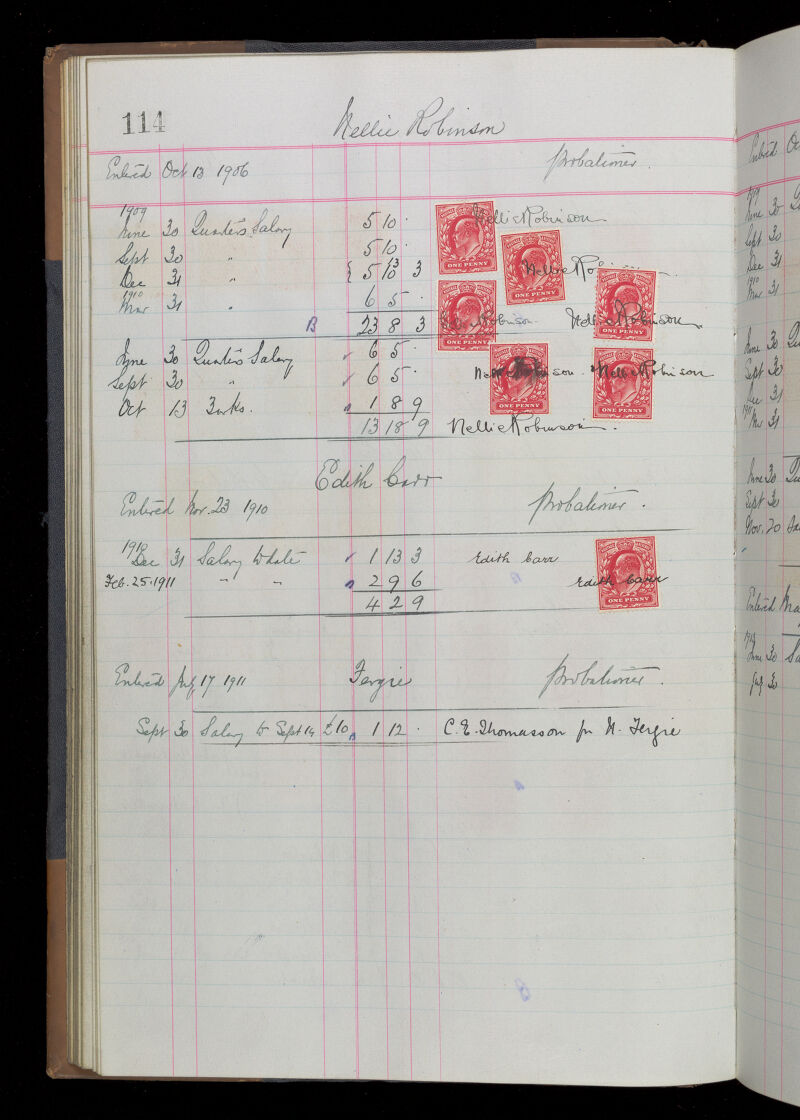 114
Nellie Robinson
Entered Oct 13 1906 Probationer.
1909
June 30 Quarter's Salary 5 10 · Nellie Robinson
Sept 30 " 5 10 ·
Dec 31 " { 5 10 13 3 Nellie Ro
1910
Mar 31 " 6 5 ·
B 23 8 3 Robinson Nellie Robinson
June 30 Quarter's Salary 6 5 ·
Sept 30 " 6 5 · Robinson Nellie Robinson
Oct 13 3 wks. 1 8 9
13 18 9 Nellie Robinson
Edith Carr
Entered Nov. 23 1910 Probationer.
1910
Dec 31 Salary to date 1 13 3 Edith Carr
Feb. 25. 1911 " " 2 9 6 Edith Carr
4 2 9
Entered July 17 1911 Fergie Probationer.
Sept 30 Salary to Sept 14 £10 1 12 · C. E. Thomasson for N. Fergie
ONE PENNY
ONE PENNY
ONE PENNY
ONE PENNY
ONE PENNY
ONE PENNY
ONE PENNY
Entered
June 30
Sept 30
Dec 31
1910
Mar 31
June 30
Sept 30
Dec 31
1911
Mar 31
June 30
Sept 30
Nov. 20
Entered
June 30
July 30